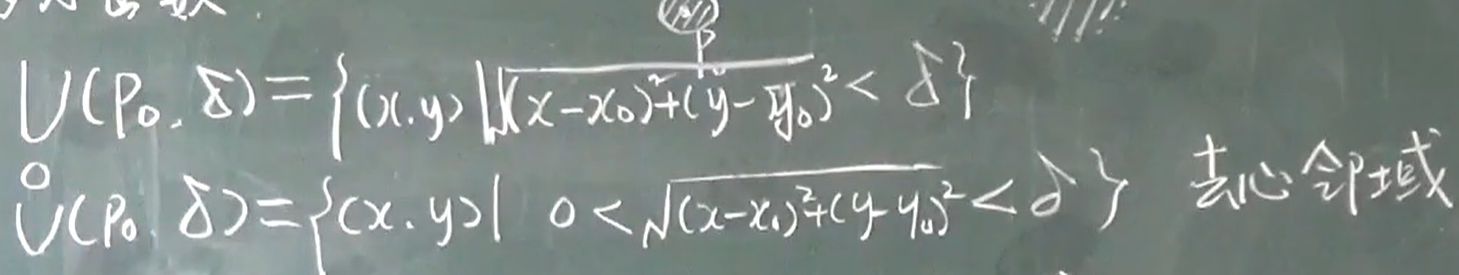 P
U(P₀, δ)={(x,y)|√((x-x₀)²+(y-y₀)²)<δ}
Ů(P₀, δ)={(x,y)| 0<√((x-x₀)²+(y-y₀)²)<δ} 去心邻域